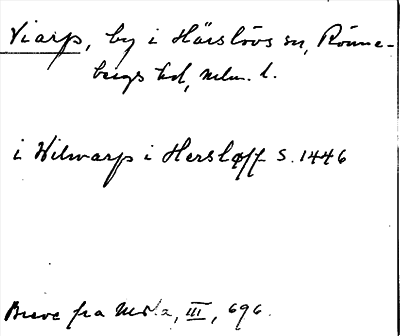 Viarp, by i Härslövs sn, Rönne-
bergs hd, Mlm. l.
i Wilwarp i Hersløff s. 1446
Breve fra Ma.a, III, 696.